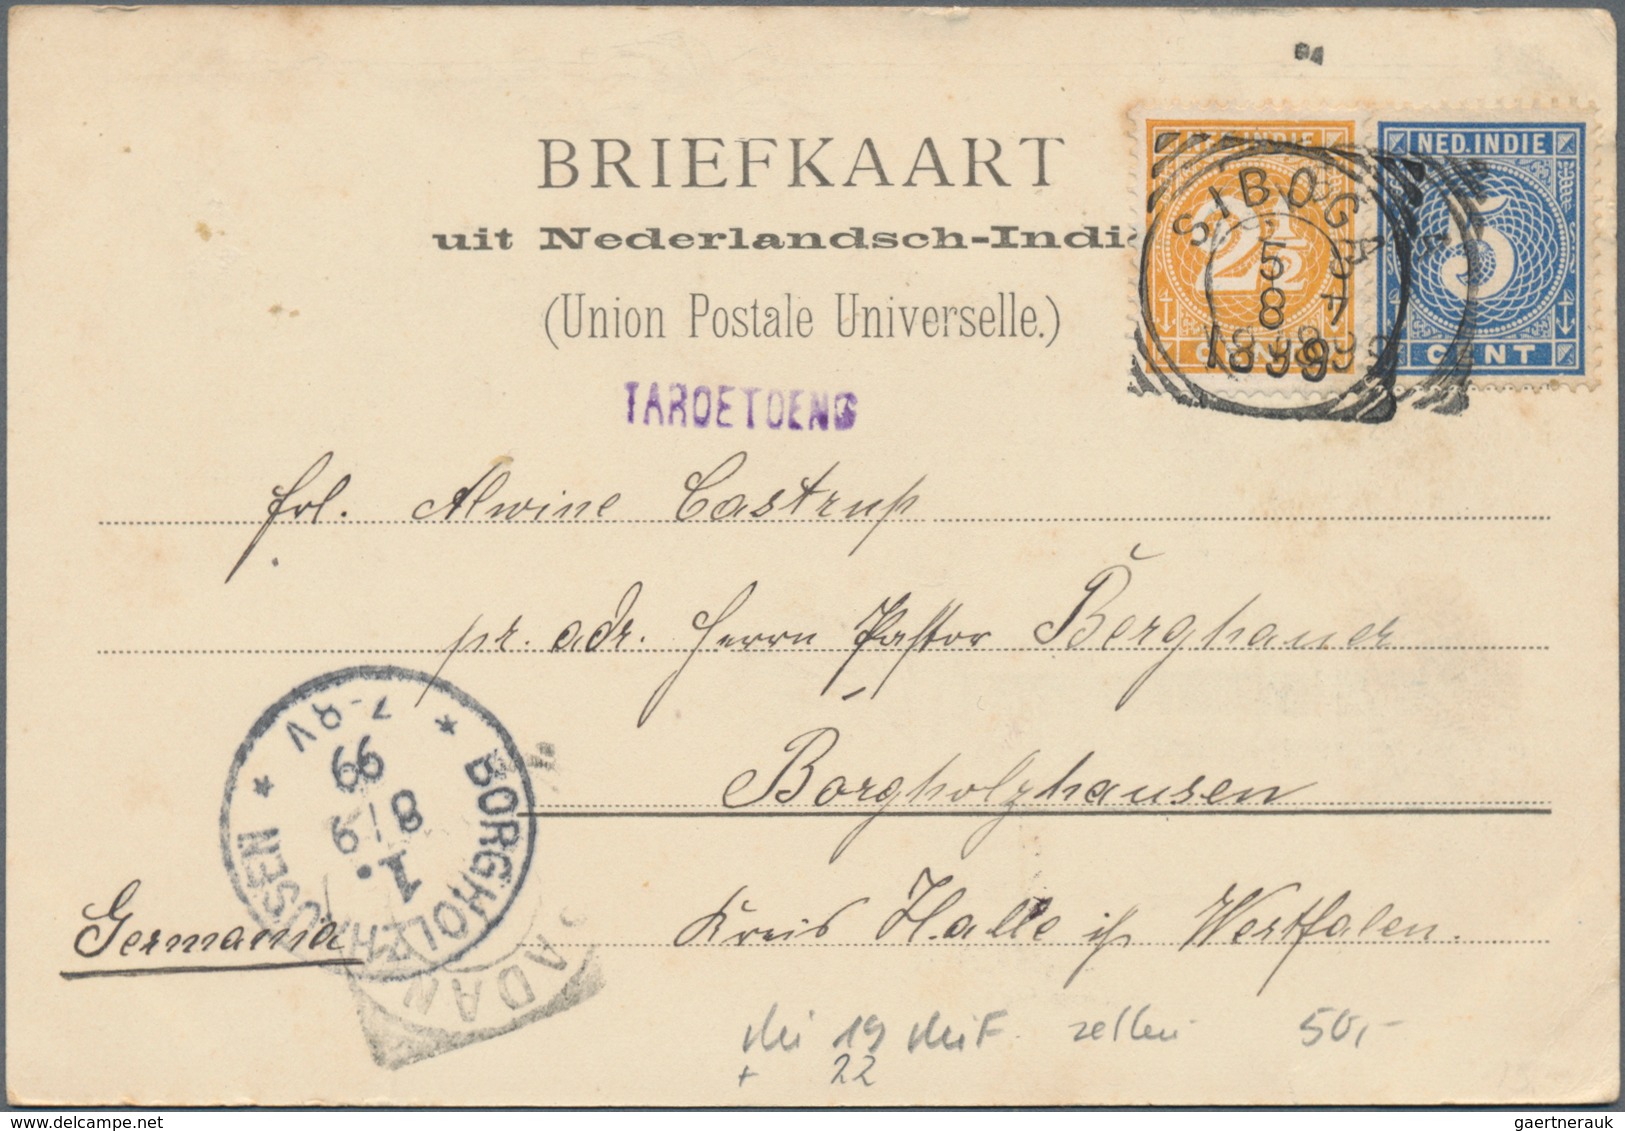 BRIEFKAART
uit Nederlandsch-Indi
(Union Postale Universelle.)
NED. INDIE
2½
CENT
NED. INDIE
5
CENT
SIBOGA
5
8
1899
TAROETOENG
frl. Alwine Castrup
pr. adr. Herrn Pastor Berghauer
Borgholzhausen
Kreis Halle i/ Westfalen.
Germania
* BORGHOLZHAUSEN *
7-8V
99
8 / 9
1.
PADANG
19
zelten 50,-
+ 22
gaertnerauk